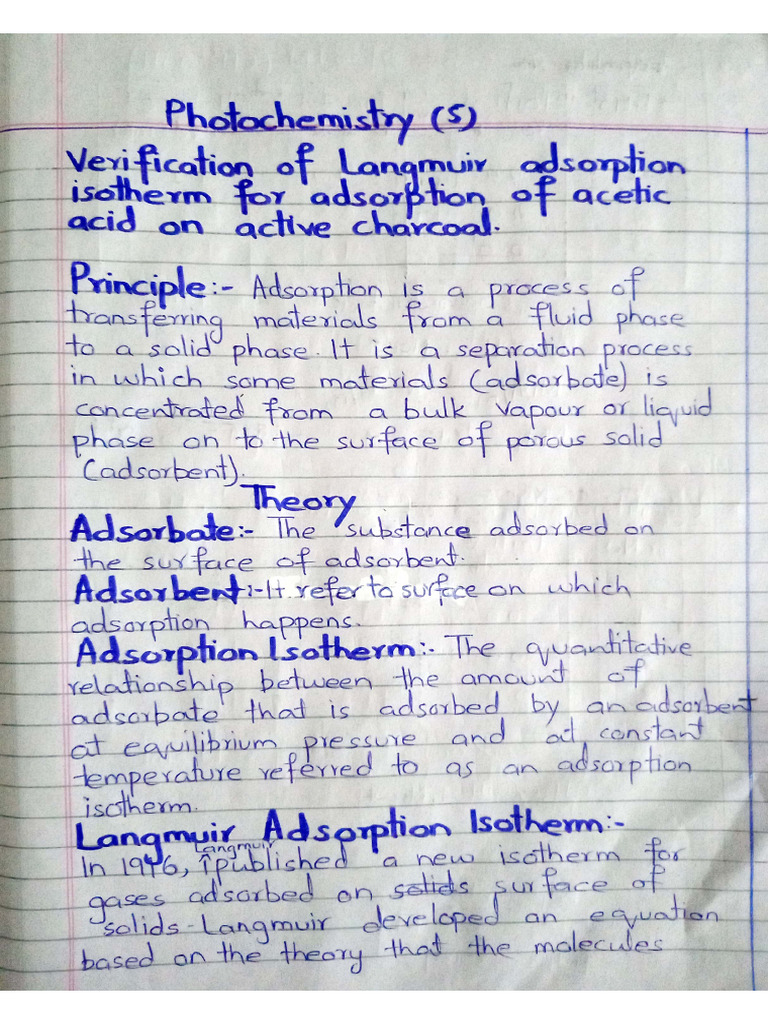 Photochemistry (5)
Verification of Langmuir adsorption
isotherm for adsorption of acetic
acid on active charcoal.
Principle:- Adsorption is a process of
transferring materials from a fluid phase
to a solid phase. It is a separation process
in which some materials (adsorbate) is
concentrated from a bulk vapour or liquid
phase on to the surface of porous solid
(adsorbent).
Theory
Adsorbate:- The substance adsorbed on
the surface of adsorbent.
Adsorbent:- It refer to surface on which
adsorption happens.
Adsorption Isotherm:- The quantitative
relationship between the amount of
adsorbate that is adsorbed by an adsorbent
at equilibrium pressure and at constant
temperature referred to as an adsorption
isotherm.
Langmuir Adsorption Isotherm:-
Langmuir
In 1916, published a new isotherm for
gases adsorbed on solids surface of
solids-Langmuir developed an equation
based on the theory that the molecules